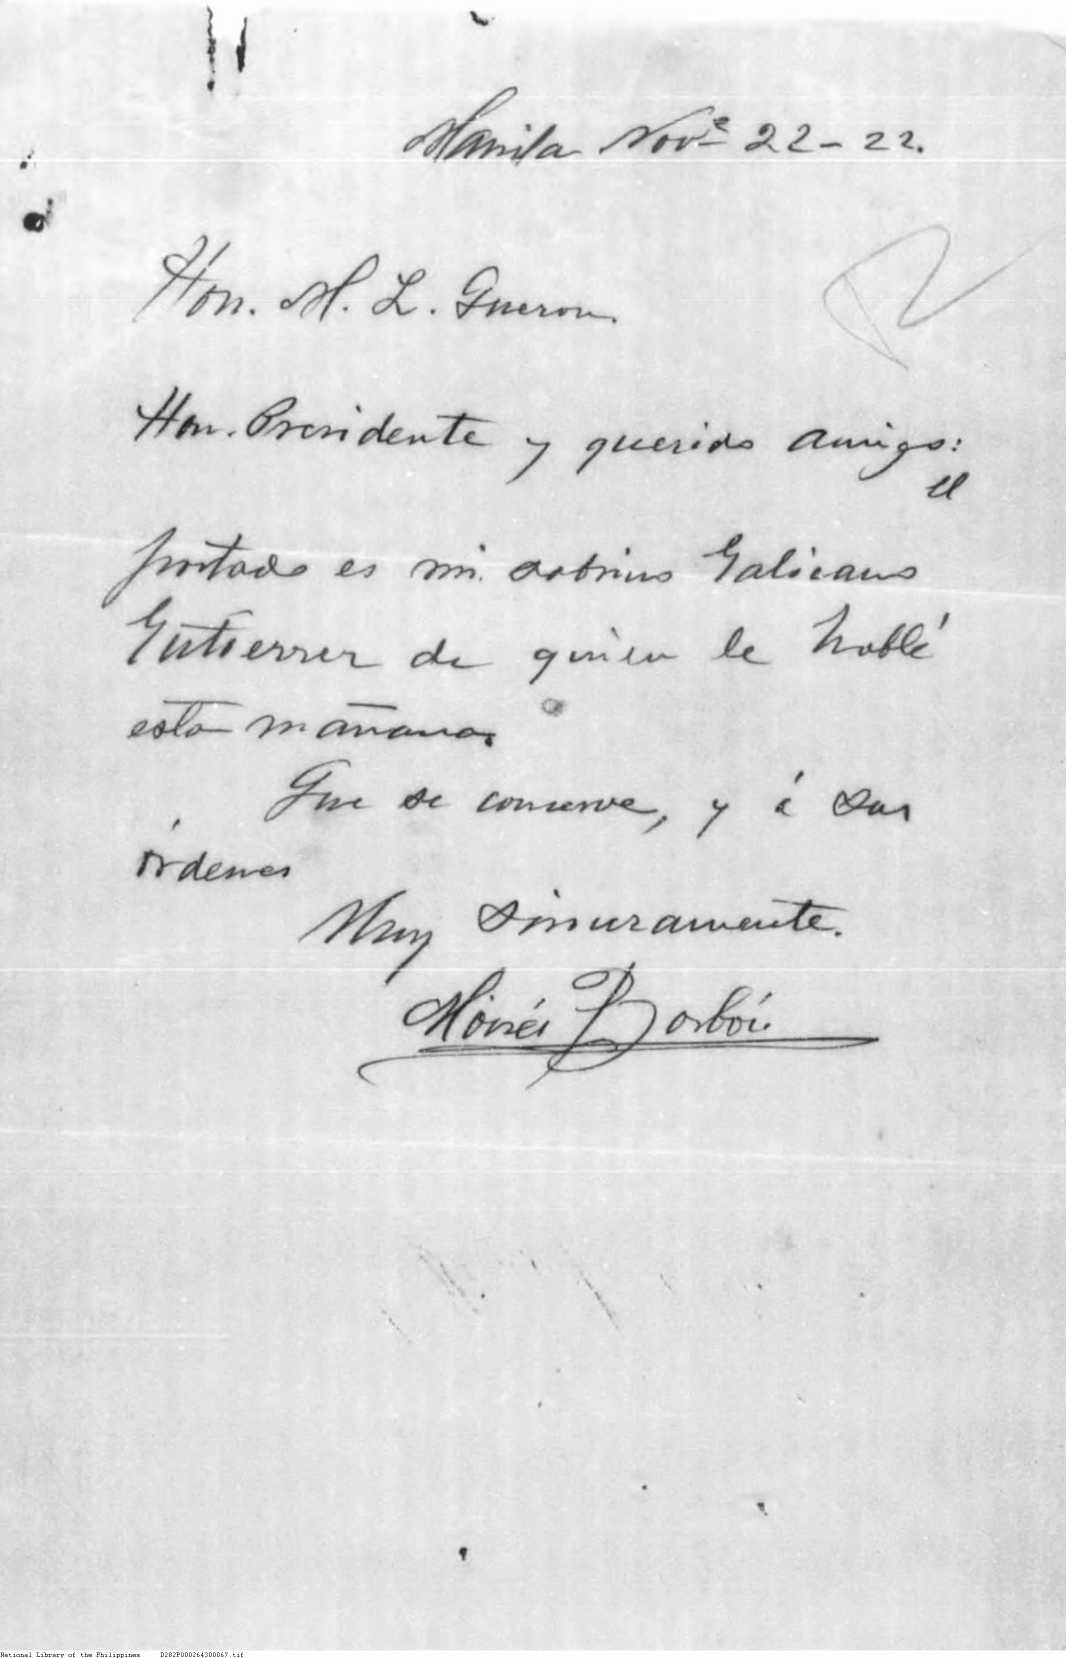 Manila Nov.e 22 - 22.
Hon. M. L. Gueron.
Hon. Presidente y querido amigo:
el
portado es mi sobrino Galicano
Gutierrez de quien le hablé
esta mañana.
Que se conserve, y á sus
órdenes
Muy sinceramente.
Moisés Borbói
National Library of the Philippines D282P000264300067.tif